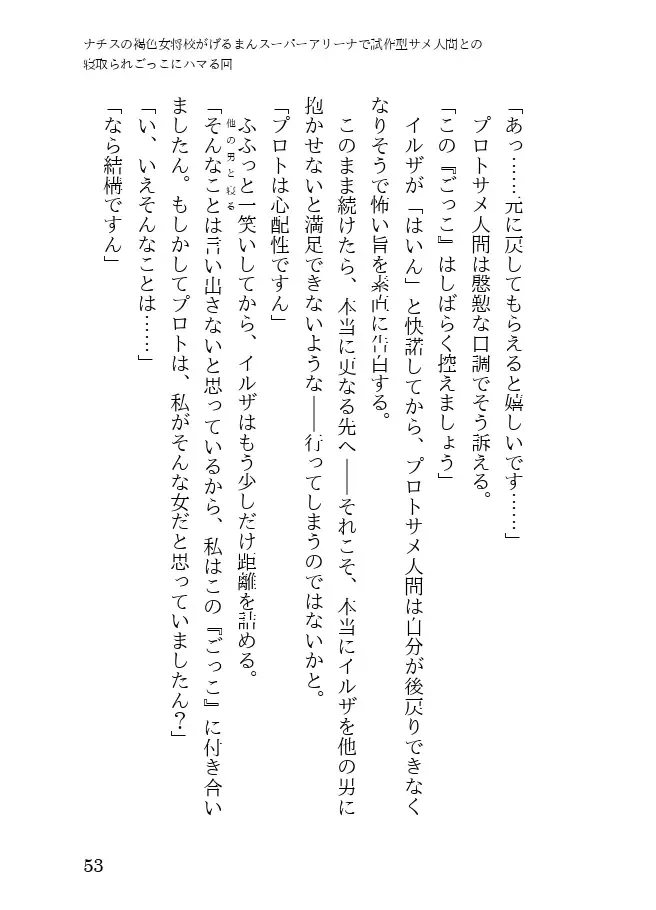 ナチスの褐色女将校がげるまんスーパーアリーナで試作型サメ人間との
寝取られごっこにハマる回
「あっ……元に戻してもらえると嬉しいです……」
プロトサメ人間は慇懃な口調でそう訴える。
「この『ごっこ』はしばらく控えましょう」
イルザが「はいん」と快諾してから、プロトサメ人間は自分が後戻りできなく
なりそうで怖い旨を素直に告白する。
このまま続けたら、本当に更なる先へ――それこそ、本当にイルザを他の男に
抱かせないと満足できないような――行ってしまうのではないかと。
「プロトは心配性ですん」
ふふっと一笑いしてから、イルザはもう少しだけ距離を詰める。
他の男と寝る
「そんなことは言い出さないと思っているから、私はこの『ごっこ』に付き合い
ましたん。もしかしてプロトは、私がそんな女だと思っていましたん？」
「い、いえそんなことは……」
「なら結構ですん」
53